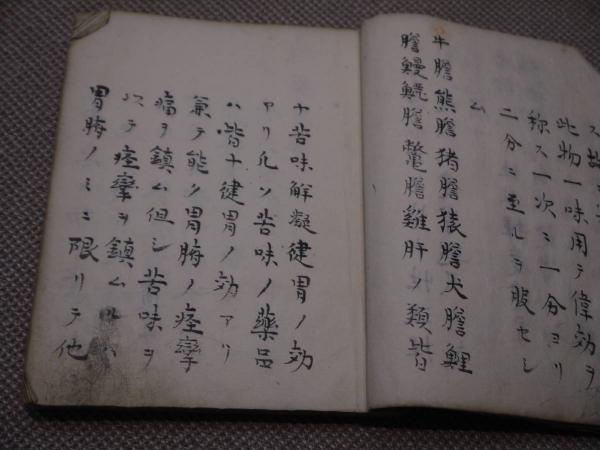 此物一味用テ偉効ヲ
称ス一次ミ一分ヨリ
二分ニ至ルヲ服セシ
ム
牛膽熊膽猪膽猿膽犬膽鯉
膽鰻鱺膽鼈膽雞肝ノ類皆
ナ苦味解凝健胃ノ効
アリ凡ソ苦味ノ藥品
ハ皆ナ健胃ノ効アリ
兼テ能ク胃腑ノ痙攣
痛ヲ鎮ム但シ苦味ヲ
以テ痙攣ヲ鎮ムルハ
胃腑ノミニ限リテ他